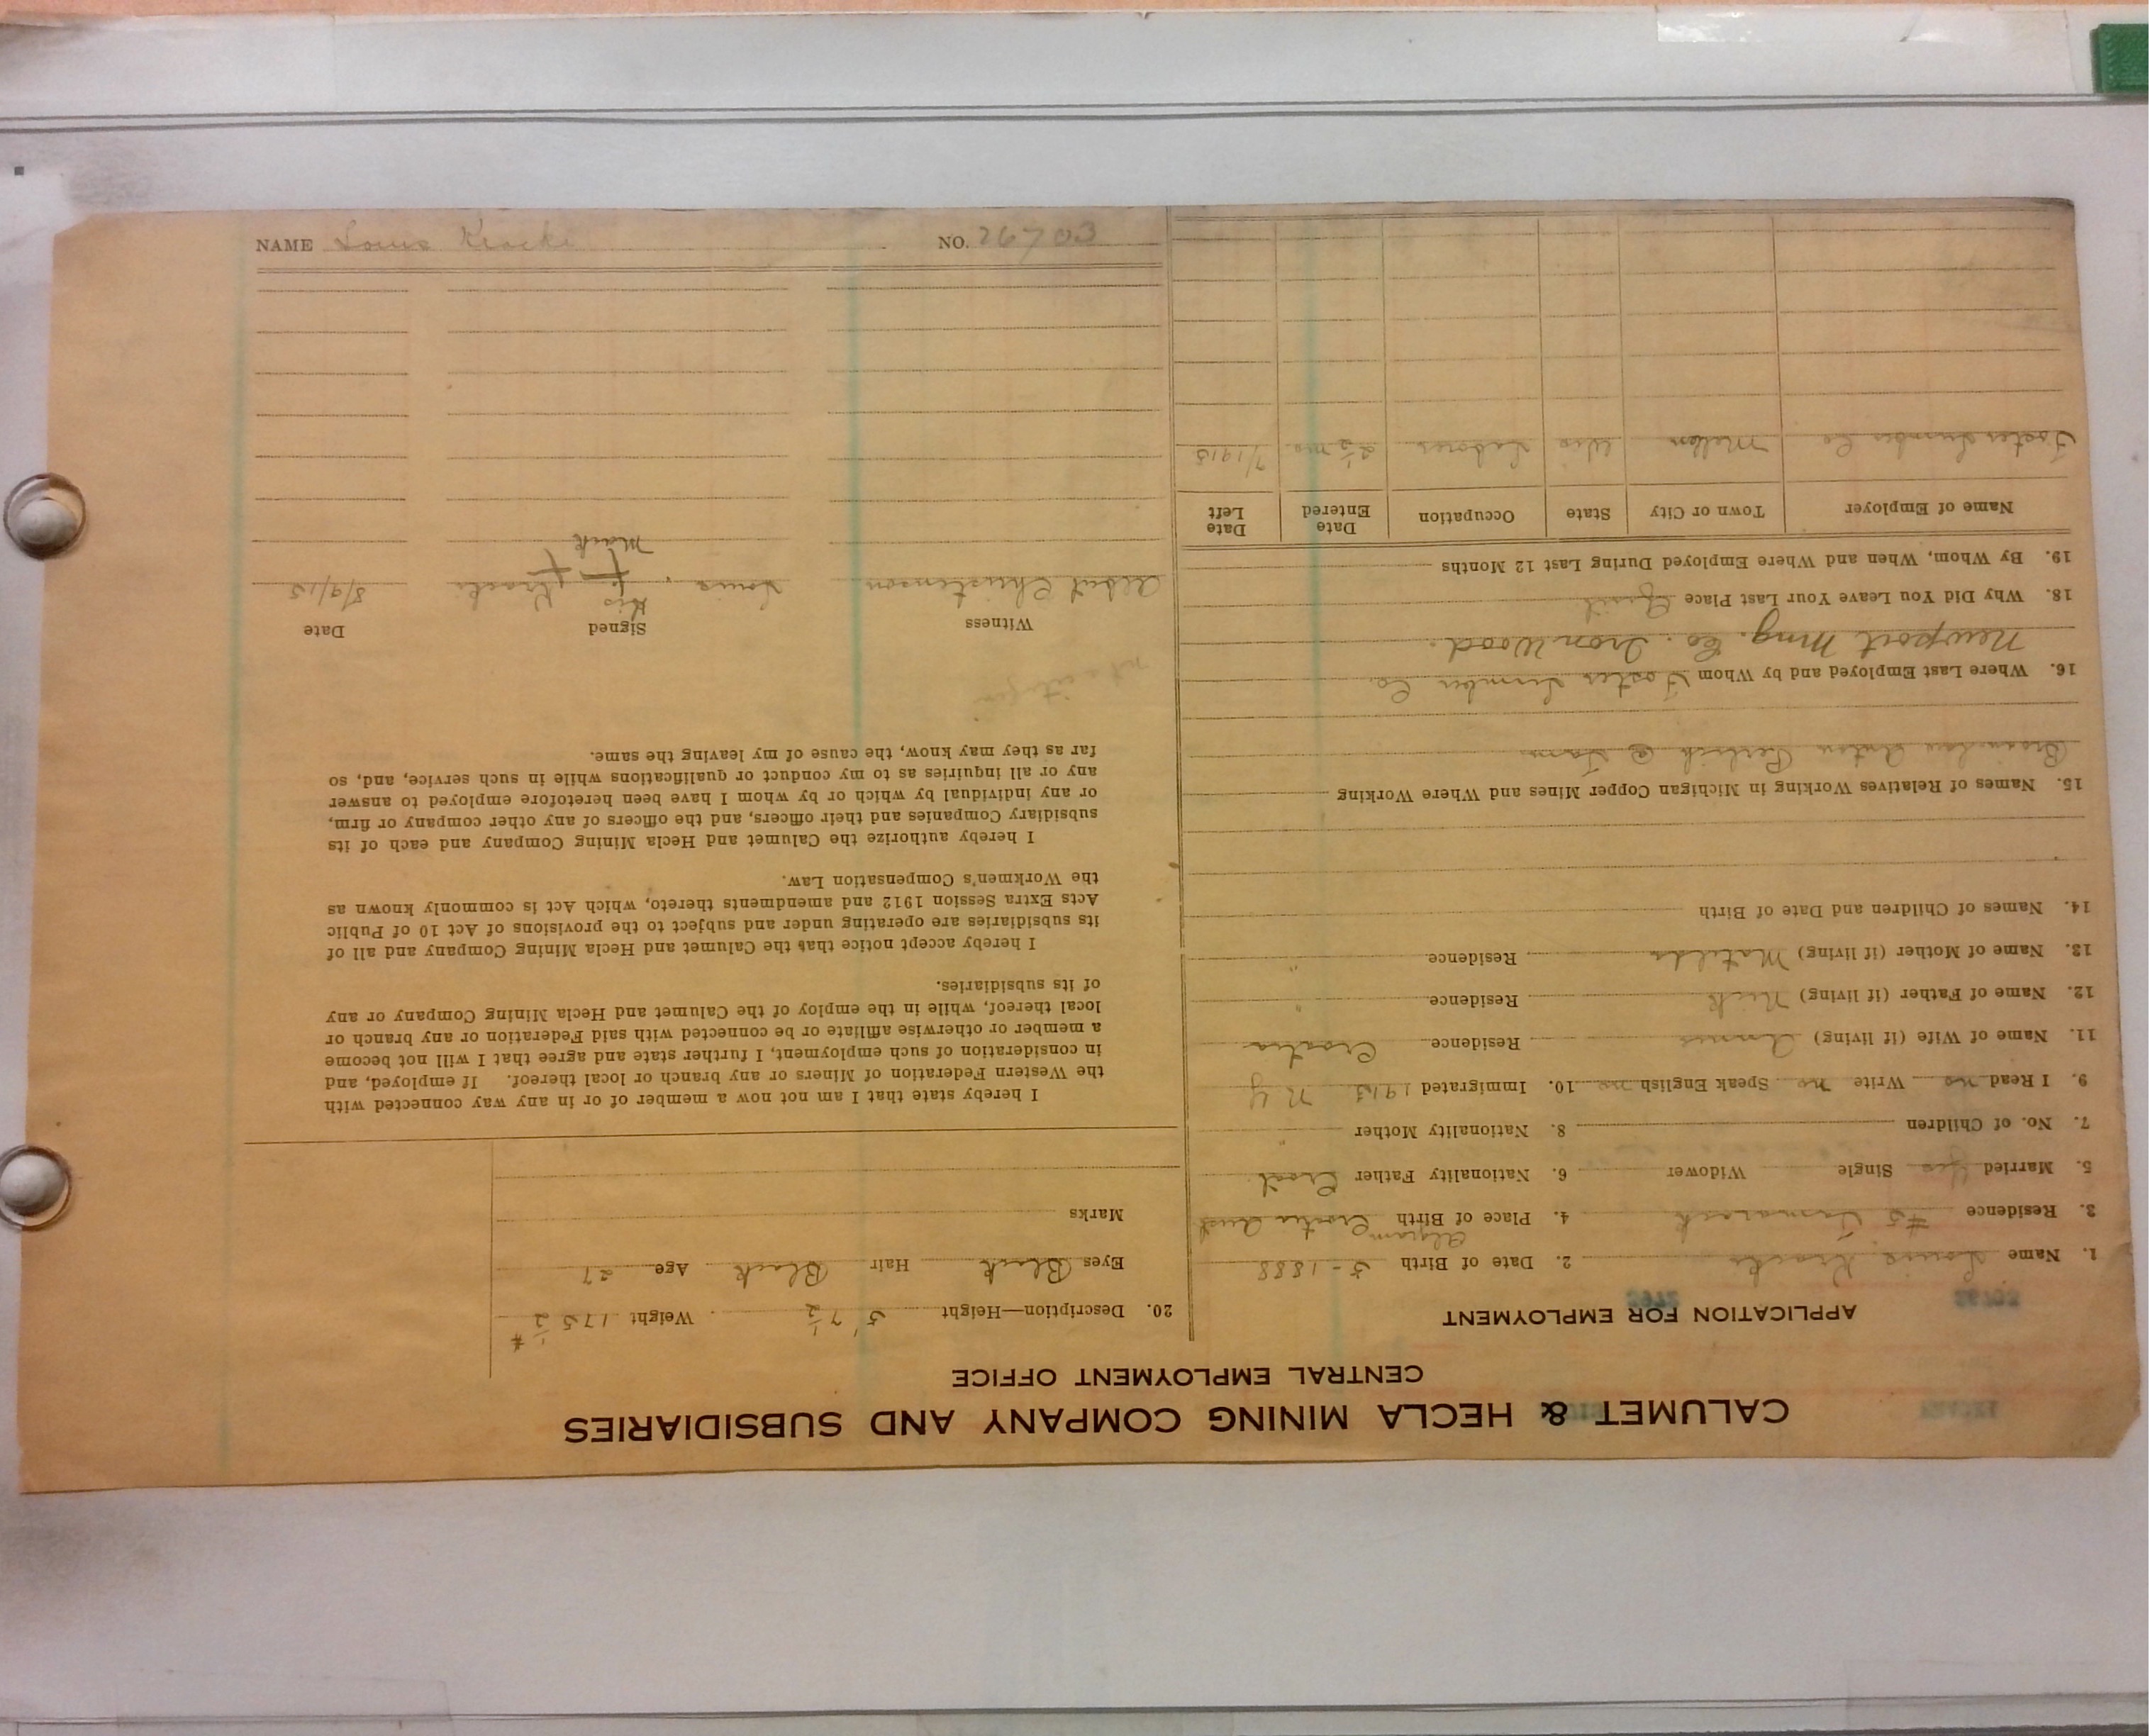 CALUMET & HECLA MINING COMPANY AND SUBSIDIARIES
CENTRAL EMPLOYMENT OFFICE
APPLICATION FOR EMPLOYMENT
1. Name Louis Kracki 2. Date of Birth 5-1888
3. Residence #5 Tamarack 4. Place of Birth Agram Croatia Aust
5. Married Yes Single Widower 6. Nationality Father Croat
7. No. of Children 8. Nationality Mother "
9. I Read no Write no Speak English no 10. Immigrated 1913 NY
11. Name of Wife (if living) Annie Residence Croatia
12. Name of Father (if living) Nick Residence "
13. Name of Mother (if living) Matilda Residence "
14. Names of Children and Date of Birth
15. Names of Relatives Working in Michigan Copper Mines and Where Working
Anton
16. Where Last Employed and by Whom Foster Lumber Co.
Newport Mng. Co. Ironwood.
18. Why Did You Leave Your Last Place Quit
19. By Whom, When and Where Employed During Last 12 Months
Name of Employer Town or City State Occupation Date Entered Date Left
Foster Lumber Co Mellen Wis Laborer 2½ mo. 7/1915
20. Description—Height 5' 7½ Weight 175½ #
Eyes Black Hair Black Age 27
Marks
I hereby state that I am not now a member of or in any way connected with
the Western Federation of Miners or any branch or local thereof. If employed, and
in consideration of such employment, I further state and agree that I will not become
a member or otherwise affiliate or be connected with said Federation or any branch or
local thereof, while in the employ of the Calumet and Hecla Mining Company or any
of its subsidiaries.
I hereby accept notice that the Calumet and Hecla Mining Company and all of
its subsidiaries are operating under and subject to the provisions of Act 10 of Public
Acts Extra Session 1912 and amendments thereto, which Act is commonly known as
the Workmen's Compensation Law.
I hereby authorize the Calumet and Hecla Mining Company and each of its
subsidiary Companies and their officers, and the officers of any other company or firm,
or any individual by which or by whom I have been heretofore employed to answer
any or all inquiries as to my conduct or qualifications while in such service, and, so
far as they may know, the cause of my leaving the same.
not a citizen
Witness Signed Date
His
Albert Christenson Louis + Kracki 8/9/15
Mark
NAME Louis Kracki NO. 26703